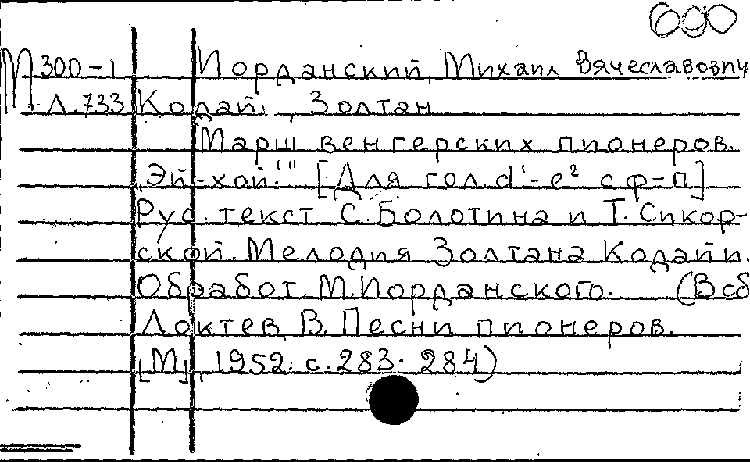 600
М 300-1 Иорданский Михаил Вячеславович
Л.733 Кодаи, Золтан
Марш венгерских пионеров.
"Эй-хой!" [Для гол. d¹-e² с ф-п]
Рус. текст С. Болотина и Т. Сикор-
ской. Мелодия Золтана Кодайи.
Обработ М. Иорданского. (В сб
Локтев, В. Песни пионеров.
[М], 1952. с. 283-284)